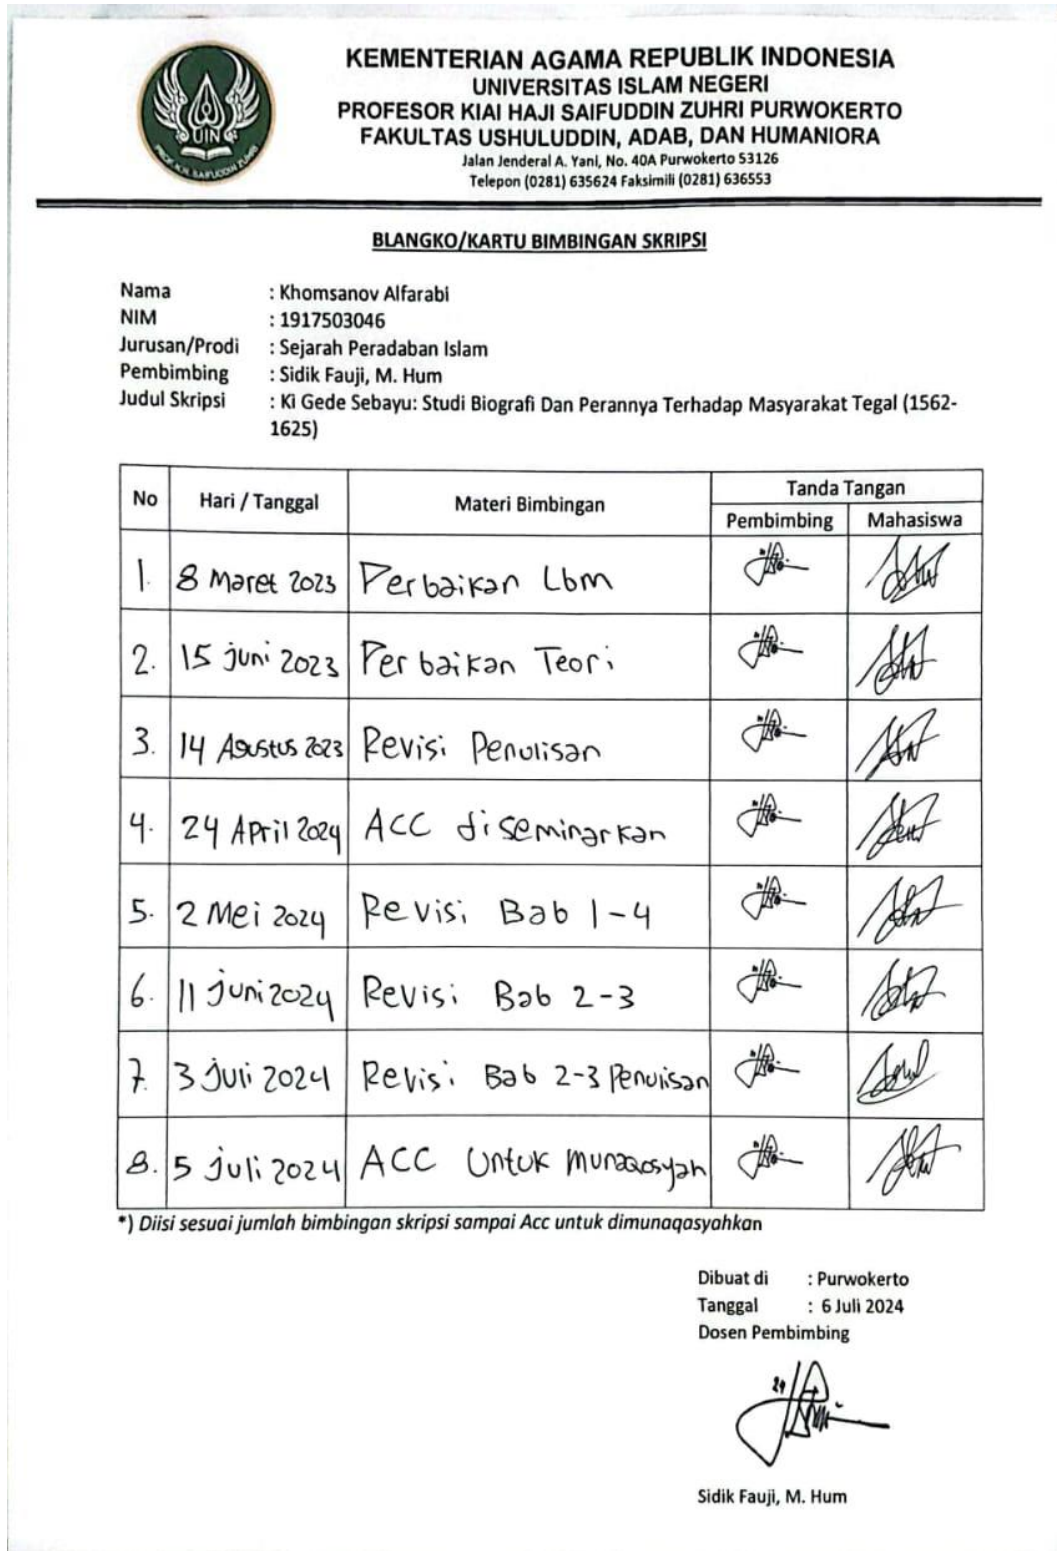 UIN
PROF. K.H. SAIFUDDIN ZUHRI
KEMENTERIAN AGAMA REPUBLIK INDONESIA
UNIVERSITAS ISLAM NEGERI
PROFESOR KIAI HAJI SAIFUDDIN ZUHRI PURWOKERTO
FAKULTAS USHULUDDIN, ADAB, DAN HUMANIORA
Jalan Jenderal A. Yani, No. 40A Purwokerto 53126
Telepon (0281) 635624 Faksimili (0281) 636553
BLANGKO/KARTU BIMBINGAN SKRIPSI
Nama : Khomsanov Alfarabi
NIM : 1917503046
Jurusan/Prodi : Sejarah Peradaban Islam
Pembimbing : Sidik Fauji, M. Hum
Judul Skripsi : Ki Gede Sebayu: Studi Biografi Dan Perannya Terhadap Masyarakat Tegal (1562-
1625)
No Hari / Tanggal Materi Bimbingan Tanda Tangan
Pembimbing Mahasiswa
1. 8 Maret 2023 Perbaikan Lbm
2. 15 juni 2023 Perbaikan Teori
3. 14 Agustus 2023 Revisi Penulisan
4. 24 April 2024 ACC diseminarkan
5. 2 Mei 2024 Revisi Bab 1-4
6. 11 juni 2024 Revisi Bab 2-3
7. 3 Juli 2024 Revisi Bab 2-3 Penulisan
8. 5 juli 2024 ACC Untuk munaqosyah
*) Diisi sesuai jumlah bimbingan skripsi sampai Acc untuk dimunaqasyahkan
Dibuat di : Purwokerto
Tanggal : 6 Juli 2024
Dosen Pembimbing
Sidik Fauji, M. Hum